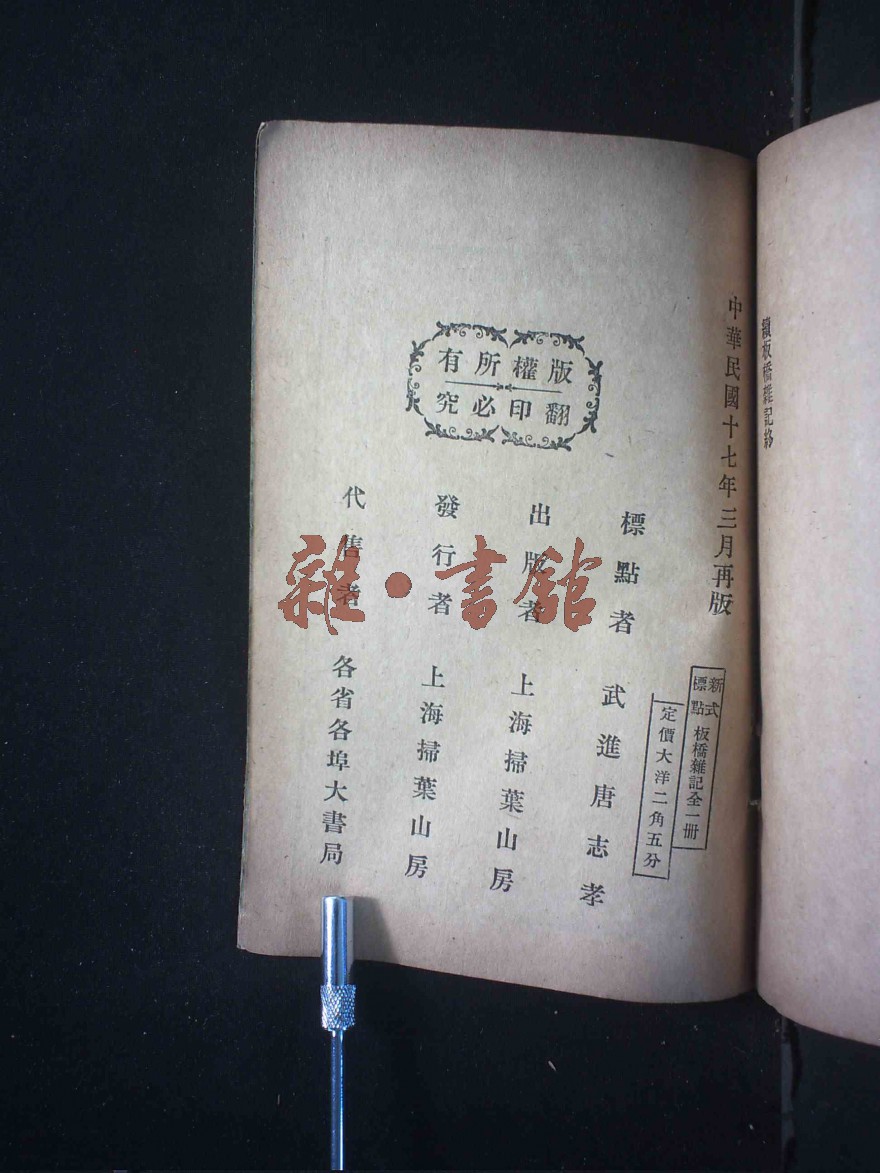 續板橋雜記終
中華民國十七年三月再版
新式
標點
板橋雜記全一冊
定價大洋二角五分
標點者 武進唐志孝
出版者 上海掃葉山房
發行者 上海掃葉山房
代售者 各省各埠大書局
版權所有
翻印必究
雜·書館